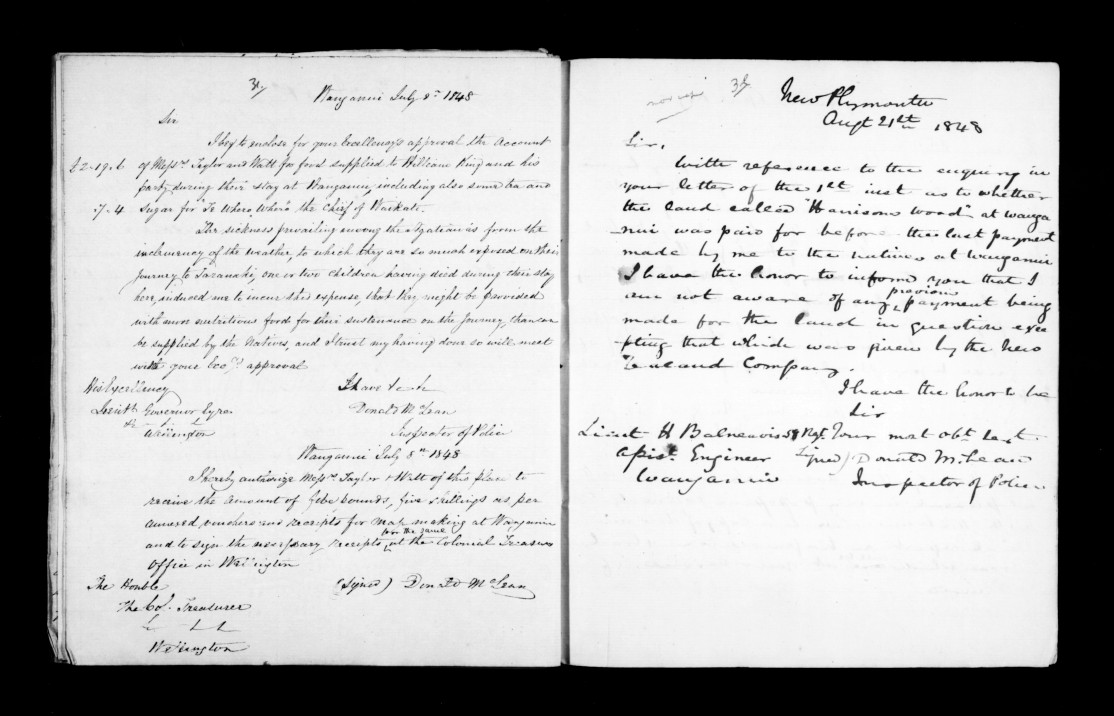 31/
Wanganui July 8th 1848
Sir
I beg to enclose for your Excellency's approval the Account
£2-19.6 of Messrs Taylor and Watt for food supplied to William King and his
party during their stay at Wanganui, including also some tea and
-7-4 sugar for "Te Whero Whero" the Chief of Waikato.
The sickness prevailing among the Ngatiawas from the
inclemency of the weather, to which they are so much exposed on their
Journey to Taranaki, one or two children having died during their stay
here, induced me to incur this expense, that they might be provided
with more nutritious food for their sustenance on the Journey, than can
be supplied by the Natives, and I trust my having done so will meet
with your Excys approval
His Excellency I have &c &c
Lieutt Governor Eyre Donald McLean
&c &c &c
Wellington Inspector of Police
Wanganui July 8th 1848
I hereby authorize Messrs Taylor & Watt of this place to
receive the amount of five pounds, five shillings as per
annexed vouchers and receipts for map making at Wanganui
for the same
and to sign the necessary receipts at the Colonial Treasurers
Office in Wellington
The Honble (signed) Donald McLean
The Col. Treasurer
&c &c &c
Wellington
32/
New Plymouth
Augt 21th 1848
Sir,
With reference to the enquiry in
your letter of the 1st inst as to whether
the land called "Harrisons wood" at wanga
-nui was paid for before the last payment
made by me to the natives at wanganui
I have the honor to inform you that I
previous
am not aware of any payment being
made for the land in question exce
-pting that which was given by the New
Zealand Company.
I have the honor to be
Sir
Lieut H Balneavis 58 Rgt. Your most obt Sert.
Assist. Engineer Signed) Donald McLean
Wanganui Inspector of Police